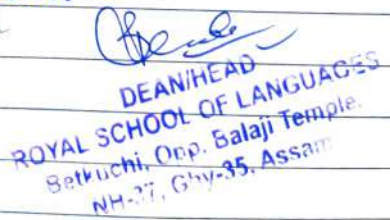 DEAN/HEAD
ROYAL SCHOOL OF LANGUAGES
Betkuchi, Opp. Balaji Temple,
NH-37, Ghy-35, Assam